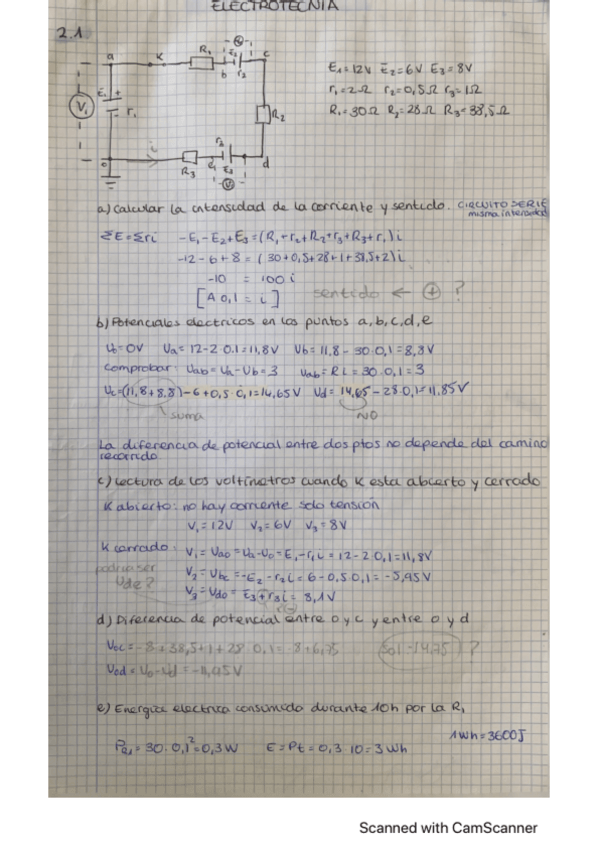 ELECTROTECNIA
2.1
a K R₁ b E₂ r₂ c
E₁ = 12V E₂ = 6V E₃ = 8V
r₁ = 2Ω r₂ = 0,5Ω r₃ = 1Ω
R₁ = 30Ω R₂ = 28Ω R₃ = 38,5Ω
V₁ E₁ + r₁ R₂
o i R₃ e E₃ d
a) Calcular la intensidad de la corriente y sentido. CIRCUITO SERIE
misma intensidad
ΣE = Σri -E₁ - E₂ + E₃ = (R₁ + r₂ + R₂ + r₃ + R₃ + r₁) i
-12 - 6 + 8 = (30 + 0,5 + 28 + 1 + 38,5 + 2) i
-10 = 100 i
[A 0,1 = i] sentido ← (+) ?
b) Potenciales electricos en los puntos a, b, c, d, e
U₀ = 0V Ua = 12 - 2·0.1 = 11,8V Ub = 11,8 - 30·0,1 = 8,8V
Comprobar: Uab = Ua - Ub = 3 Uab = R i = 30·0,1 = 3
Uc = (11,8 + 8,8) - 6 + 0,5·0,1 = 14,65V Ud = 14,65 - 28·0,1 = 11,85V
suma NO
La diferencia de potencial entre dos ptos no depende del camino
recorrido
c) Lectura de los voltímetros cuando K esta abierto y cerrado
K abierto: no hay corriente solo tensión
V₁ = 12V V₂ = 6V V₃ = 8V
K cerrado: V₁ = Uao = Ua - Uo = E₁ - r₁ i = 12 - 2·0,1 = 11,8V
podria ser V₂ = Ubc = -E₂ - r₂ i = 6 - 0,5·0,1 = -5,95V
Ude? V₃ = Udo = E₃ + r₃ i = 8,1V
d) Diferencia de potencial entre o y c y entre o y d
Uoc = -8 + 38,5 + 1 + 28·0,1 = -8 + 6,75 (sol -14,75) ?
Uod = Uo - Ud = -11,95V
e) Energia electrica consumida durante 10h por la R₁
1Wh = 3600J
PR₁ = 30·0,1² = 0,3W E = Pt = 0,3·10 = 3 Wh
Scanned with CamScanner